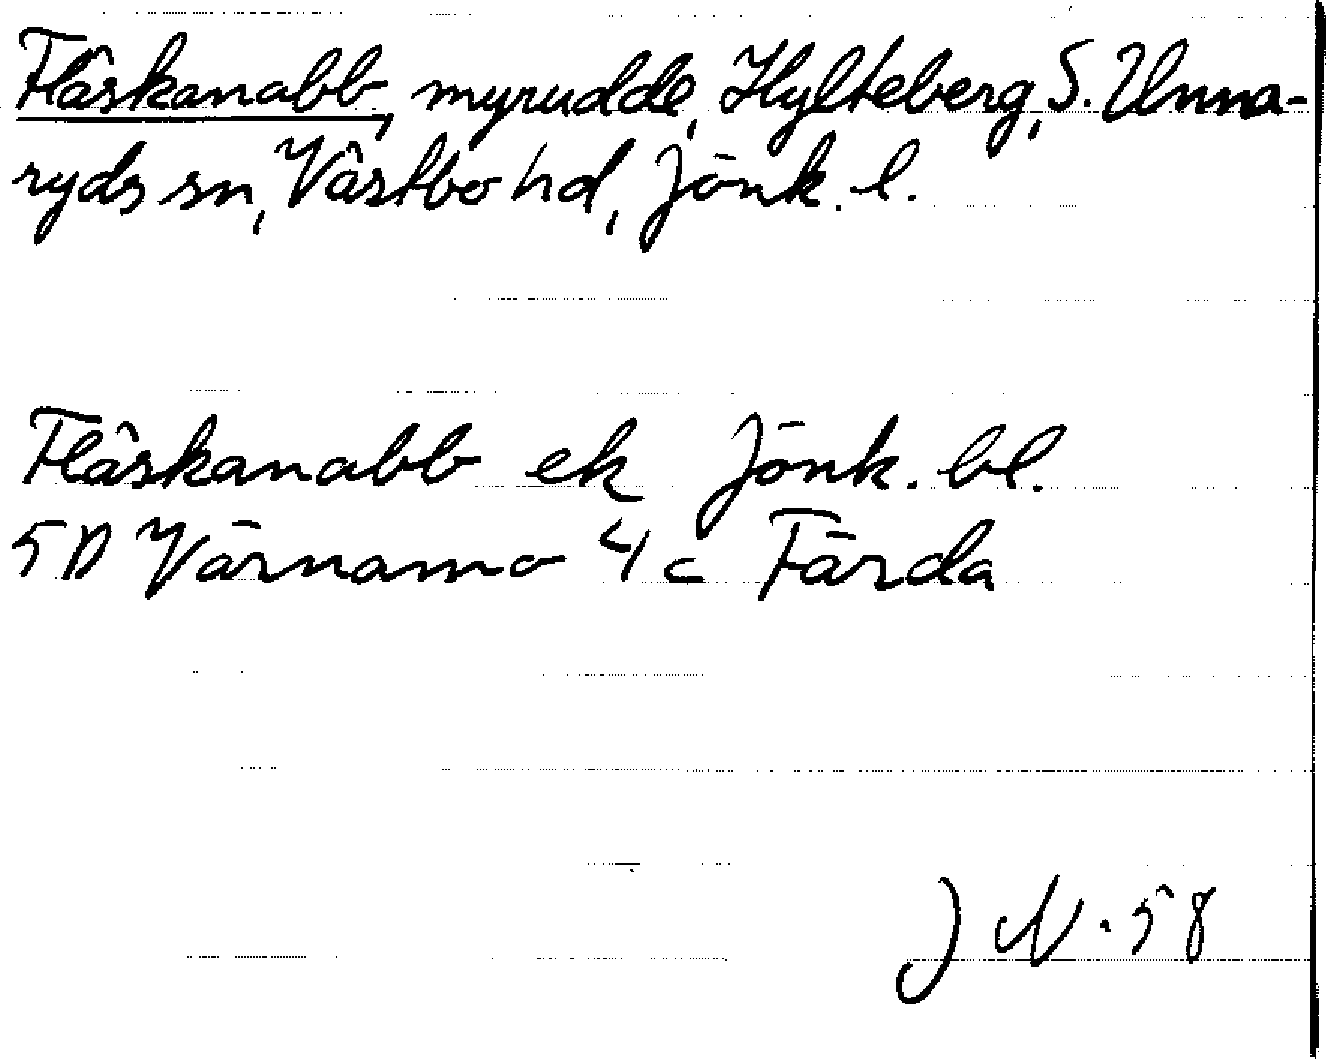 Fläskanabb, myrudde, Hylteberg, S. Unna-
ryds sn, Västbo hd, Jönk. l.
Fläskanabb ek Jönk. bl.
5D Värnamo 4c Färda
J N. 58